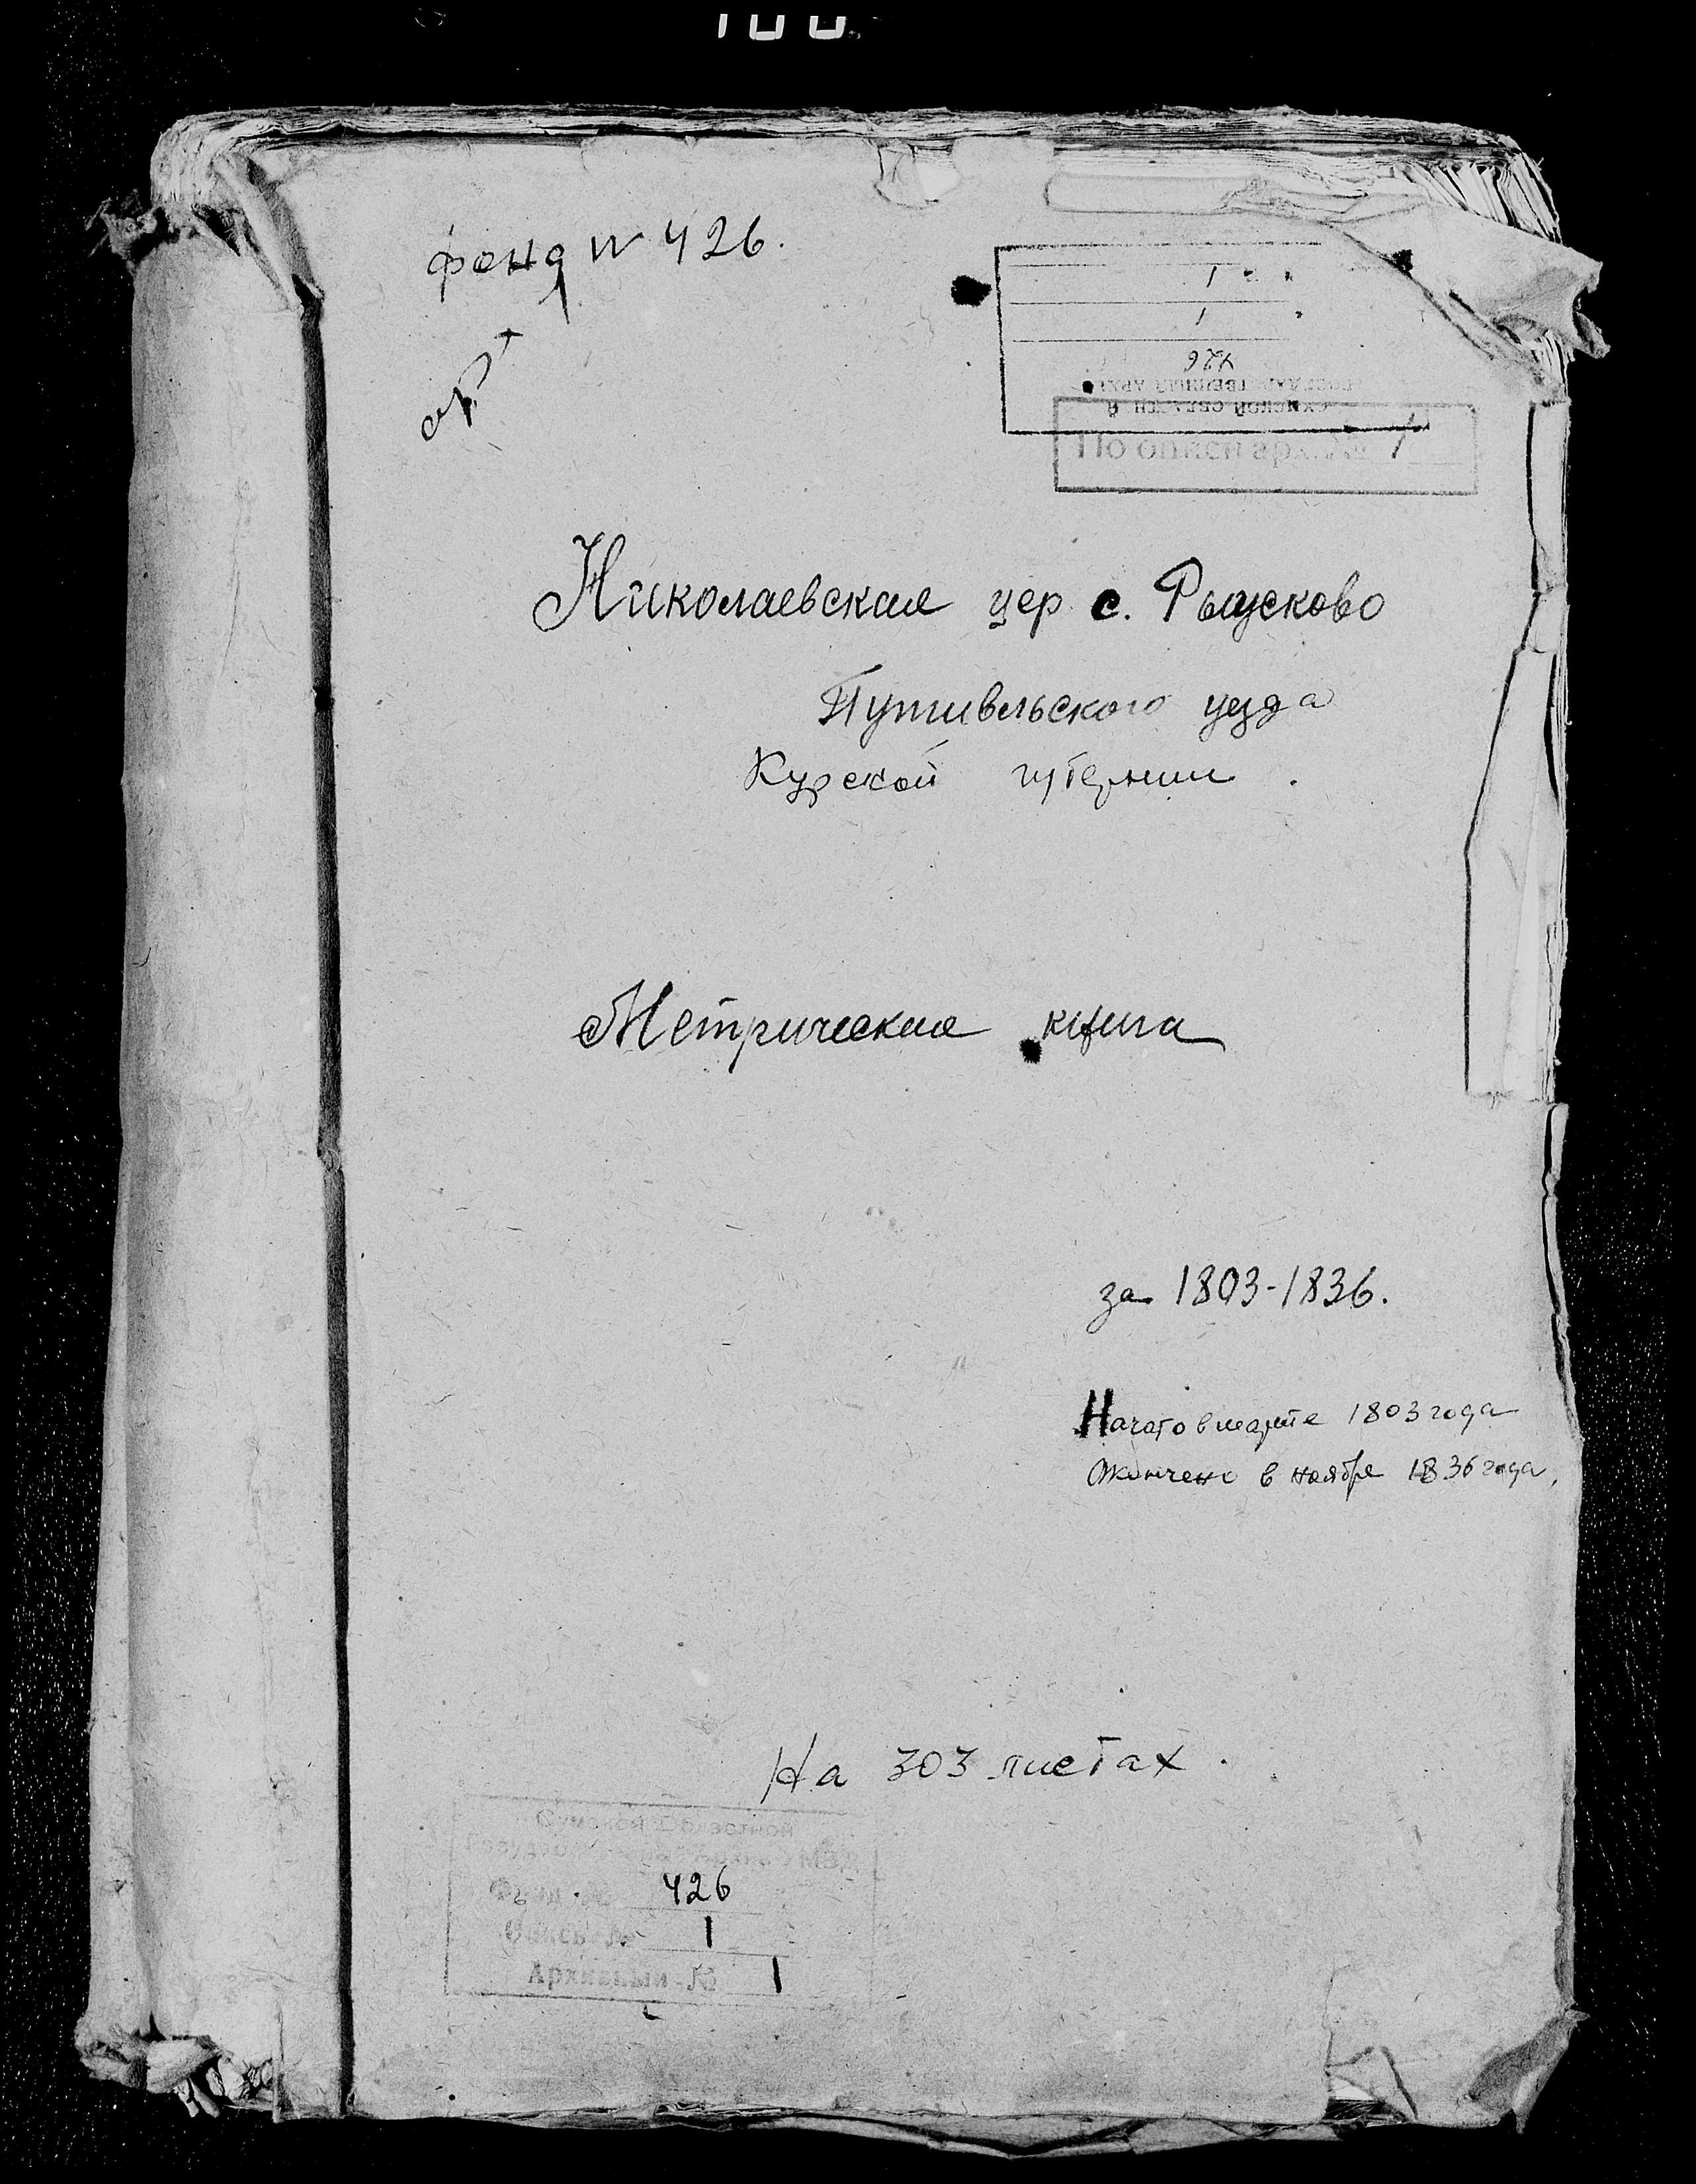 фонд N 426.
1
1
426
По описи арх. № 1
Николаевская цер с. Рыусково
Путивльского уезда
Курской губернии.
Метрическая книга
за 1803-1836.
Начато в марте 1803 года
Окончено в ноябре 1836 года.
На 303 листах.
Сумской Областной
Государственный Архив МВД
Фонд № 426
Опись № 1
Архивный № 1